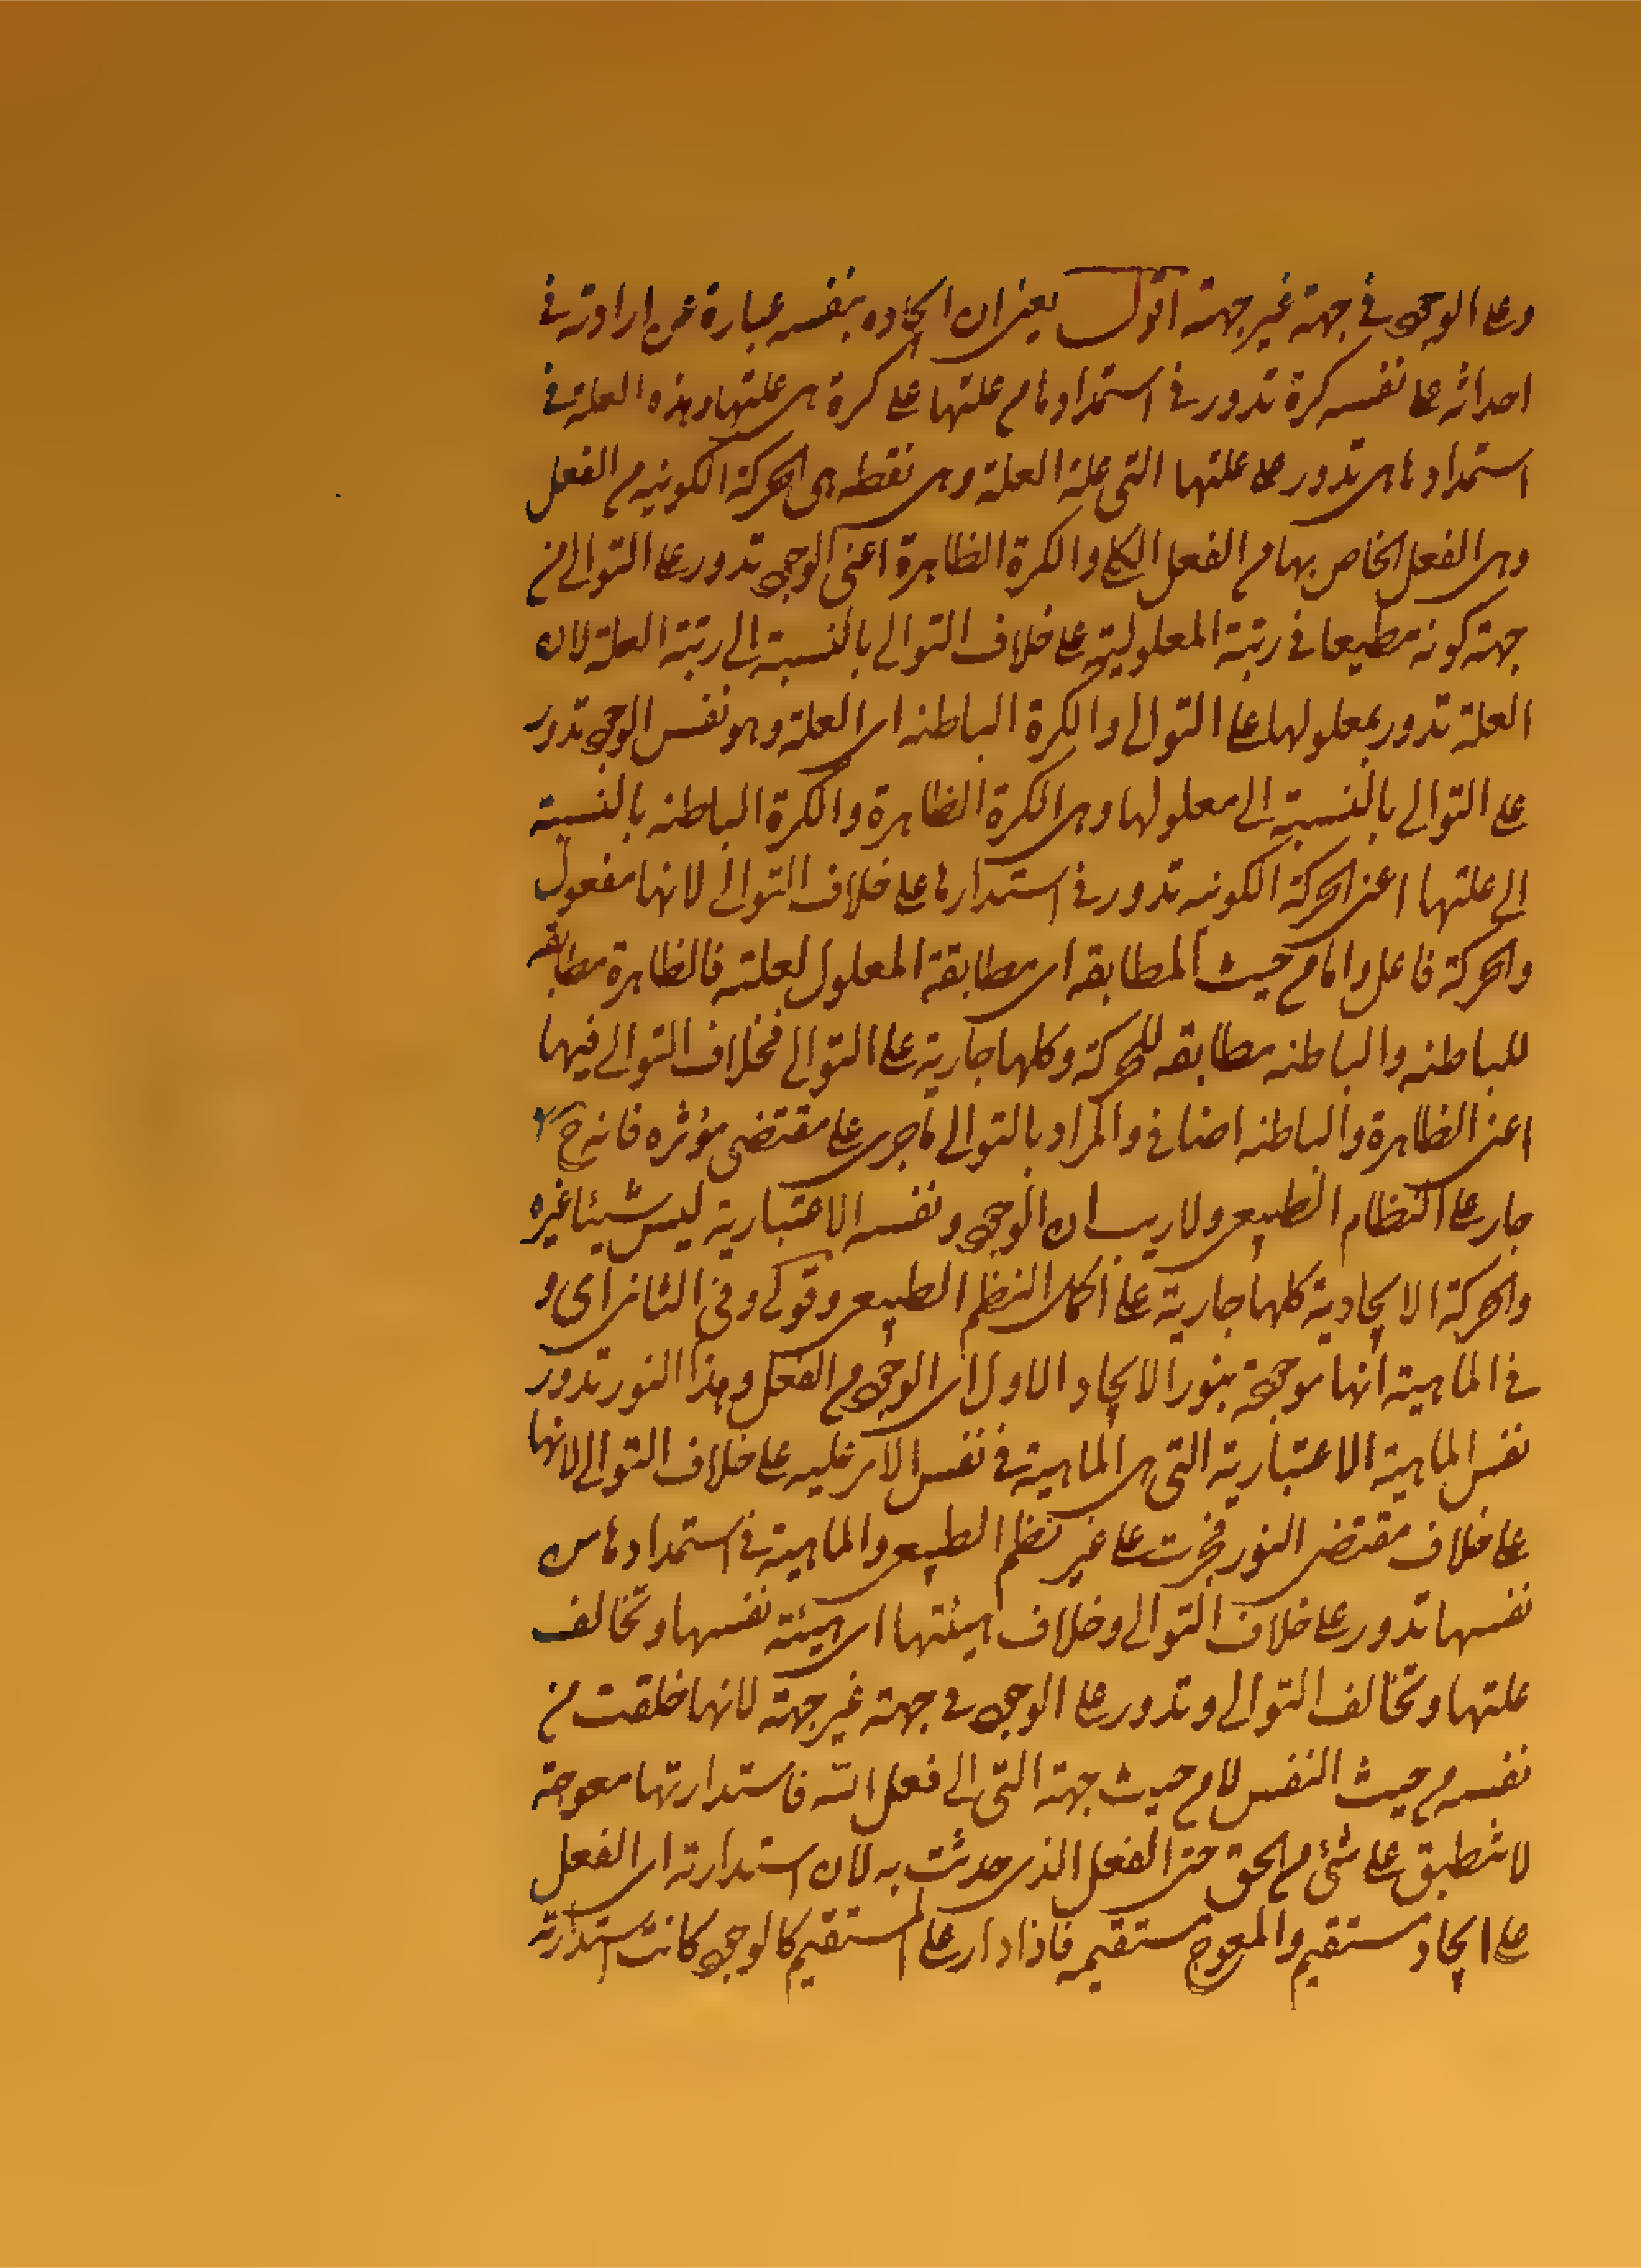 وعلى الوجود في جهة غير جهته اقول يعني ان ايجاده بنفسه عبارة عن ادارته في
احداثه على نفسه كرة تدور في استمدادها من علتها على كرة هي علتها وهذه العلة في
استمدادها هي تدور على علتها التي علة العلة وهي نقطه هي الحركة الكونيه من الفعل
وهي الفعل الخاص بها من الفعل الكلي والكرة الظاهرة اعني الوجود تدور على التوالي من
جهة كونه مطيعا في رتبة المعلولية على خلاف التوالي بالنسبة الى رتبة العلة لان
العلة تدور بمعلولها على التوالي والكرة الباطنه اي العلة وهو نفس الوجود تدور
على التوالي بالنسبة الى معلولها وهي الكرة الظاهرة والكرة الباطنه بالنسبة
الى علتها اعني الحركة الكونيه تدور في استدارتها على خلاف التوالي لانها مفعول
والحركة فاعل واما من حيث المطابقه اي مطابقة المعلول لعلته فالظاهرة مطابقه
للباطنه والباطنه مطابقه للحركة وكلها جارية على التوالي فخلاف التوالي فيها
اعني الظاهرة والباطنه اضافي والمراد بالتوالي ما جرى على مقتضى مؤثره فانه ح
جار على النظام الطبيعي ولا ريب ان الوجود ونفسه الاعتبارية ليس شيئا غيره
والحركة الايجادية كلها جارية على اكمل النظم الطبيعي وقولي وفي الثاني اي و
في الماهية انها موجودة بنور الايجاد الاول اي الوجود من الفعل وهذا النور تدور
نفس الماهية الاعتبارية التي هي الماهية في نفس الامر عليه على خلاف التوالي لانها
على خلاف مقتضى النور فجرت على غير نظم الطبيعي والماهية في استمدادها من
نفسها تدور على خلاف التوالي وخلاف هيئتها اي هيئة نفسها وتخالف
علتها وتخالف التوالي وتدور على الوجود في جهة غير جهته لانها خلقت من
نفسه من حيث النفس لا من حيث جهته التي الى فعل الله فاستدارتها معوجة
لا تنطبق على شئ من الحق حتى الفعل الذي حدثت به لان استدارته اي الفعل
على ايجاد مستقيم والمعوج مستقيمه فاذا دار على المستقيم كالوجود كانت استدارته